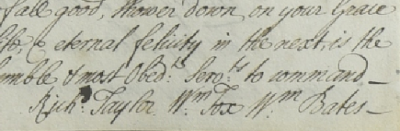 of all good, shower down on your Grace
life, & eternal felicity in the next, is the
humble & most Obedts. Servts. to command_
Richd. Taylor Wm. Fox Wm. Bates_